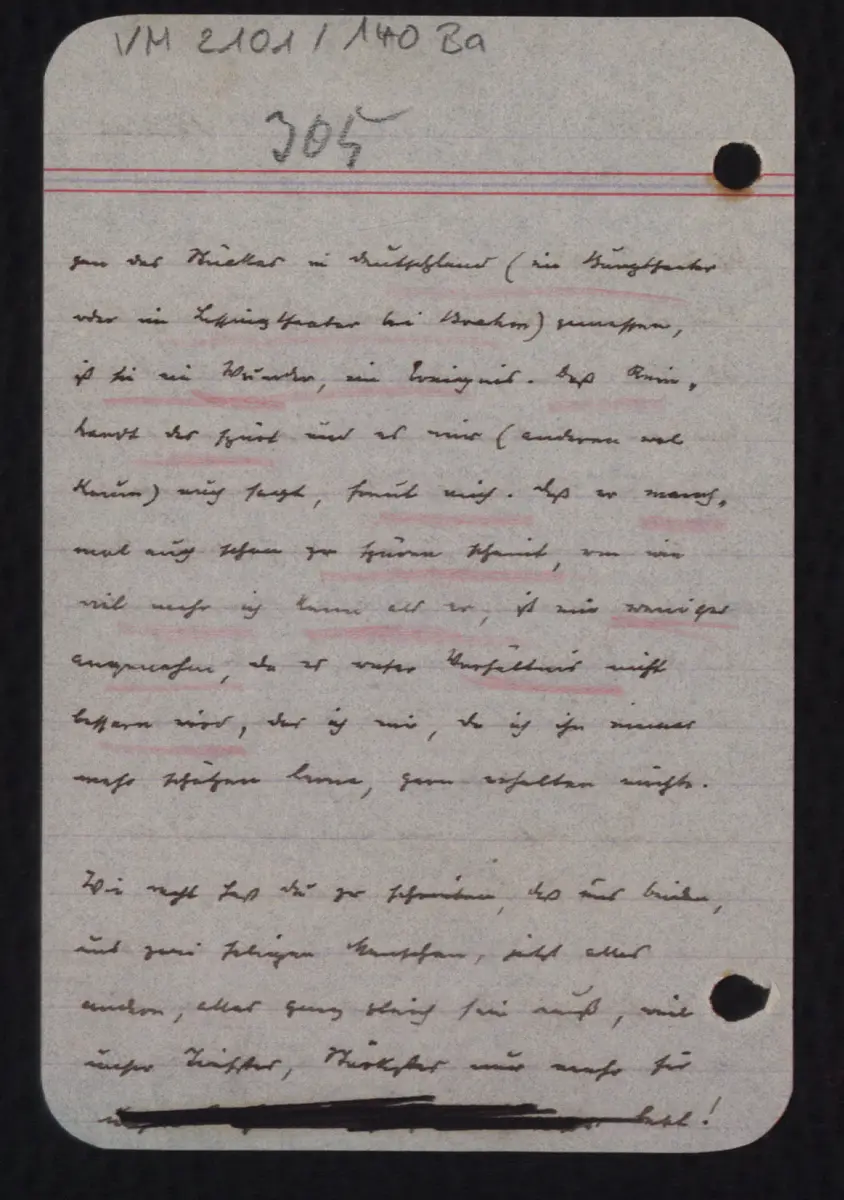 VM 2101 / 140 Ba
305
gen des Stückes in Deutschland (im Burgtheater
oder im Lessingtheater bei Brahm) gemessen,
ist sie ein Wunder, ein Ereignis. Daß Rein-
hardt das spürt und es mir (anderen wol
kaum) auch sagt, freut mich. Daß er manch-
mal auch schon zu spüren scheint, um wie
viel mehr ich kann als er, ist mir weniger
angenehm, da es unser Verhältnis nicht
bessern wird, das ich mir, da ich ihn immer
mehr schätzen lerne, gern erhalten möchte.
Wie recht hast du zu schreiben, daß uns beiden,
uns zwei seligen Menschen, jetzt alles
andere, alles ganz gleich sein muß, weil
unser Tiefstes, Stärkstes nur mehr für
lebt!